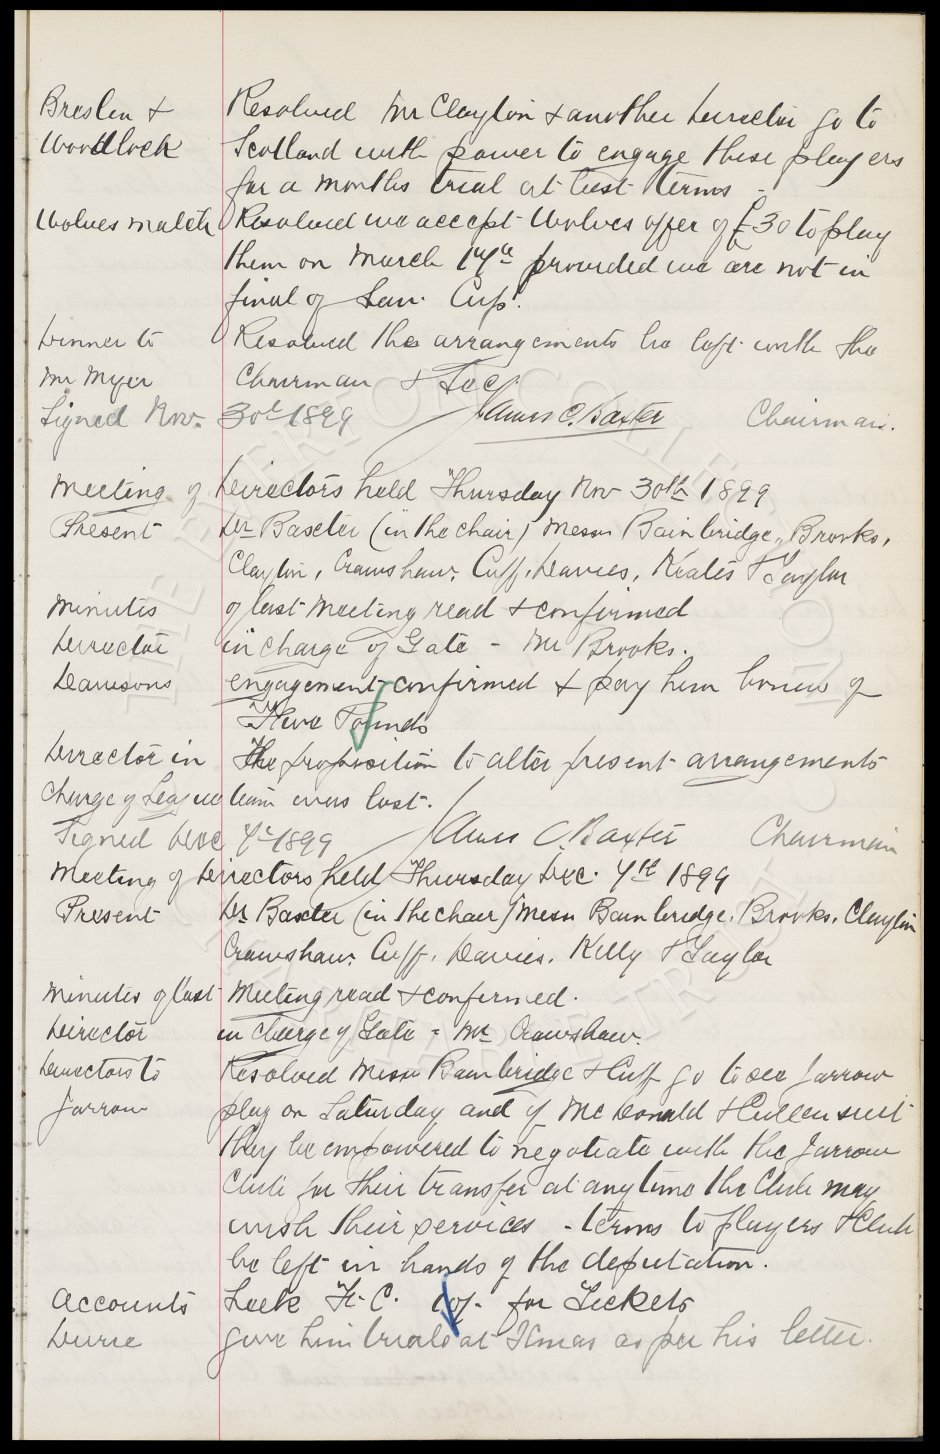 Breslen & Resolved Mr Clayton & another Director go to
Woodlock Scotland with power to engage these players
for a months trial at best terms -
Wolves match Resolved we accept Wolves offer of £30 to play
them on March 17th provided we are not in
final of Lan. Cup.
Dinner to Resolved the arrangements be left with the
Mr Myer Chairman & Sec
Signed Nov. 30th 1899 James C. Baxter Chairman.
Meeting of Directors held Thursday Nov 30th 1899
Present Dr Baxter (in the chair) Messrs Bainbridge, Brooks,
Clayton, Crawshaw, Cuff, Davies, Keates & Taylor
Minutes of last meeting read & confirmed
Director in charge of Gate - Mr Brooks.
Dawsons engagement confirmed & pay him bonus of
Five Pounds
Director in The proposition to alter present arrangements
charge of League team was lost.
Signed Dec 7th 1899 James C Baxter Chairman
Meeting of Directors held Thursday Dec. 7th 1899
Present Dr Baxter (in the chair) Messrs Bainbridge, Brooks, Clayton
Crawshaw, Cuff, Davies, Kelly & Taylor
Minutes of last Meeting read & confirmed.
Director in charge of Gate - Mr Crawshaw.
Directors to Resolved Messrs Bainbridge & Cuff go to see Jarrow
Jarrow play on Saturday and if McDonald & Cullen suit
they be empowered to negotiate with the Jarrow
Club for their transfer at any time the Club may
wish their services - terms to players & Club
be left in hands of the deputation.
Accounts Leek F.C. for Tickets
give him trials at Xmas as per his letter.